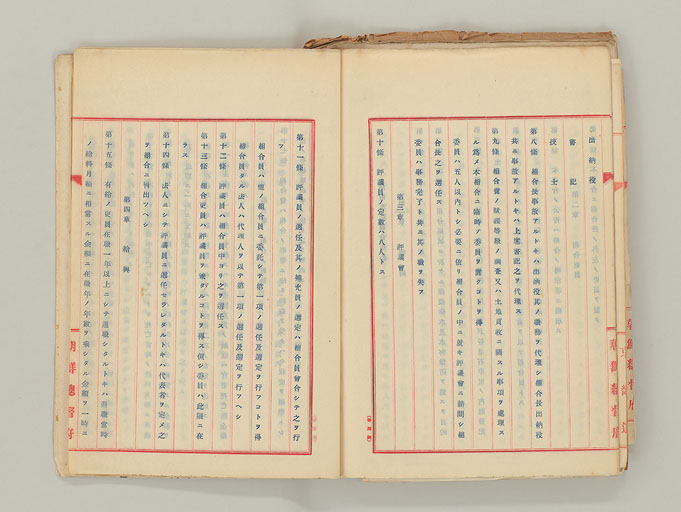 出納役
書記
技士
第八條 組合長事故アルトキハ出納役其ノ職務ヲ代理シ組合長出納役
共ニ事故アルトキハ上席書記之ヲ代理ス
第九條 組合費ノ賦課等級ノ調査又ハ土地買收ニ關スル事項ヲ處理ス
ル爲メ本組合ニ臨時ニ委員ヲ置クコトヲ得
委員ハ五人以內トシ必要ニ依リ組合員ノ中ニ就キ評議會ニ諮問シ組
合長之ヲ選任ス
委員ハ事務完了ト共ニ其ノ職ヲ失フ
第三章 評議會
第十條 評議員ノ定數ハ八人トス
第十一條 評議員ノ選任及其ノ補充員ノ選定ハ組合員會合シテ之ヲ行
フ
組合員ハ他ノ組合員ニ委託シテ第一項ノ選任及選定ヲ行フコトヲ得
組合員タル法人ハ代理人ヲ以テ第一項ノ選任及選定ヲ行フヘシ
第十二條 評議員ハ組合員中ヨリ之ヲ選任ス
第十三條 組合吏員ハ評議員ヲ兼タルコトヲ得ス但シ委員ハ此限ニ在
ラス
第十四條 法人ニシテ評議員ニ選任セラレタルトキハ代表者ヲ定メ之
ヲ組合ニ届出ツヘシ
第四章 給與
第十五條 有給ノ吏員在職一年以上ニシテ退職シタルトキハ退職當時
ノ給料月額ニ相當スル金額ニ在職年ノ年數ヲ乘シタル金額ヲ一時ニ
朝鮮總督府